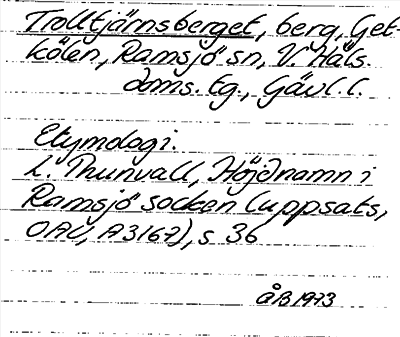 Trolltjärnsberget, berg, Get-
kölen, Ramsjö sn, V. Häls.
doms. tg., Gävl. l.
Etymologi.
L. Thunvall, Höjdnamn i
Ramsjö socken (uppsats,
OAU, A3162), s. 36
ÅB 1973